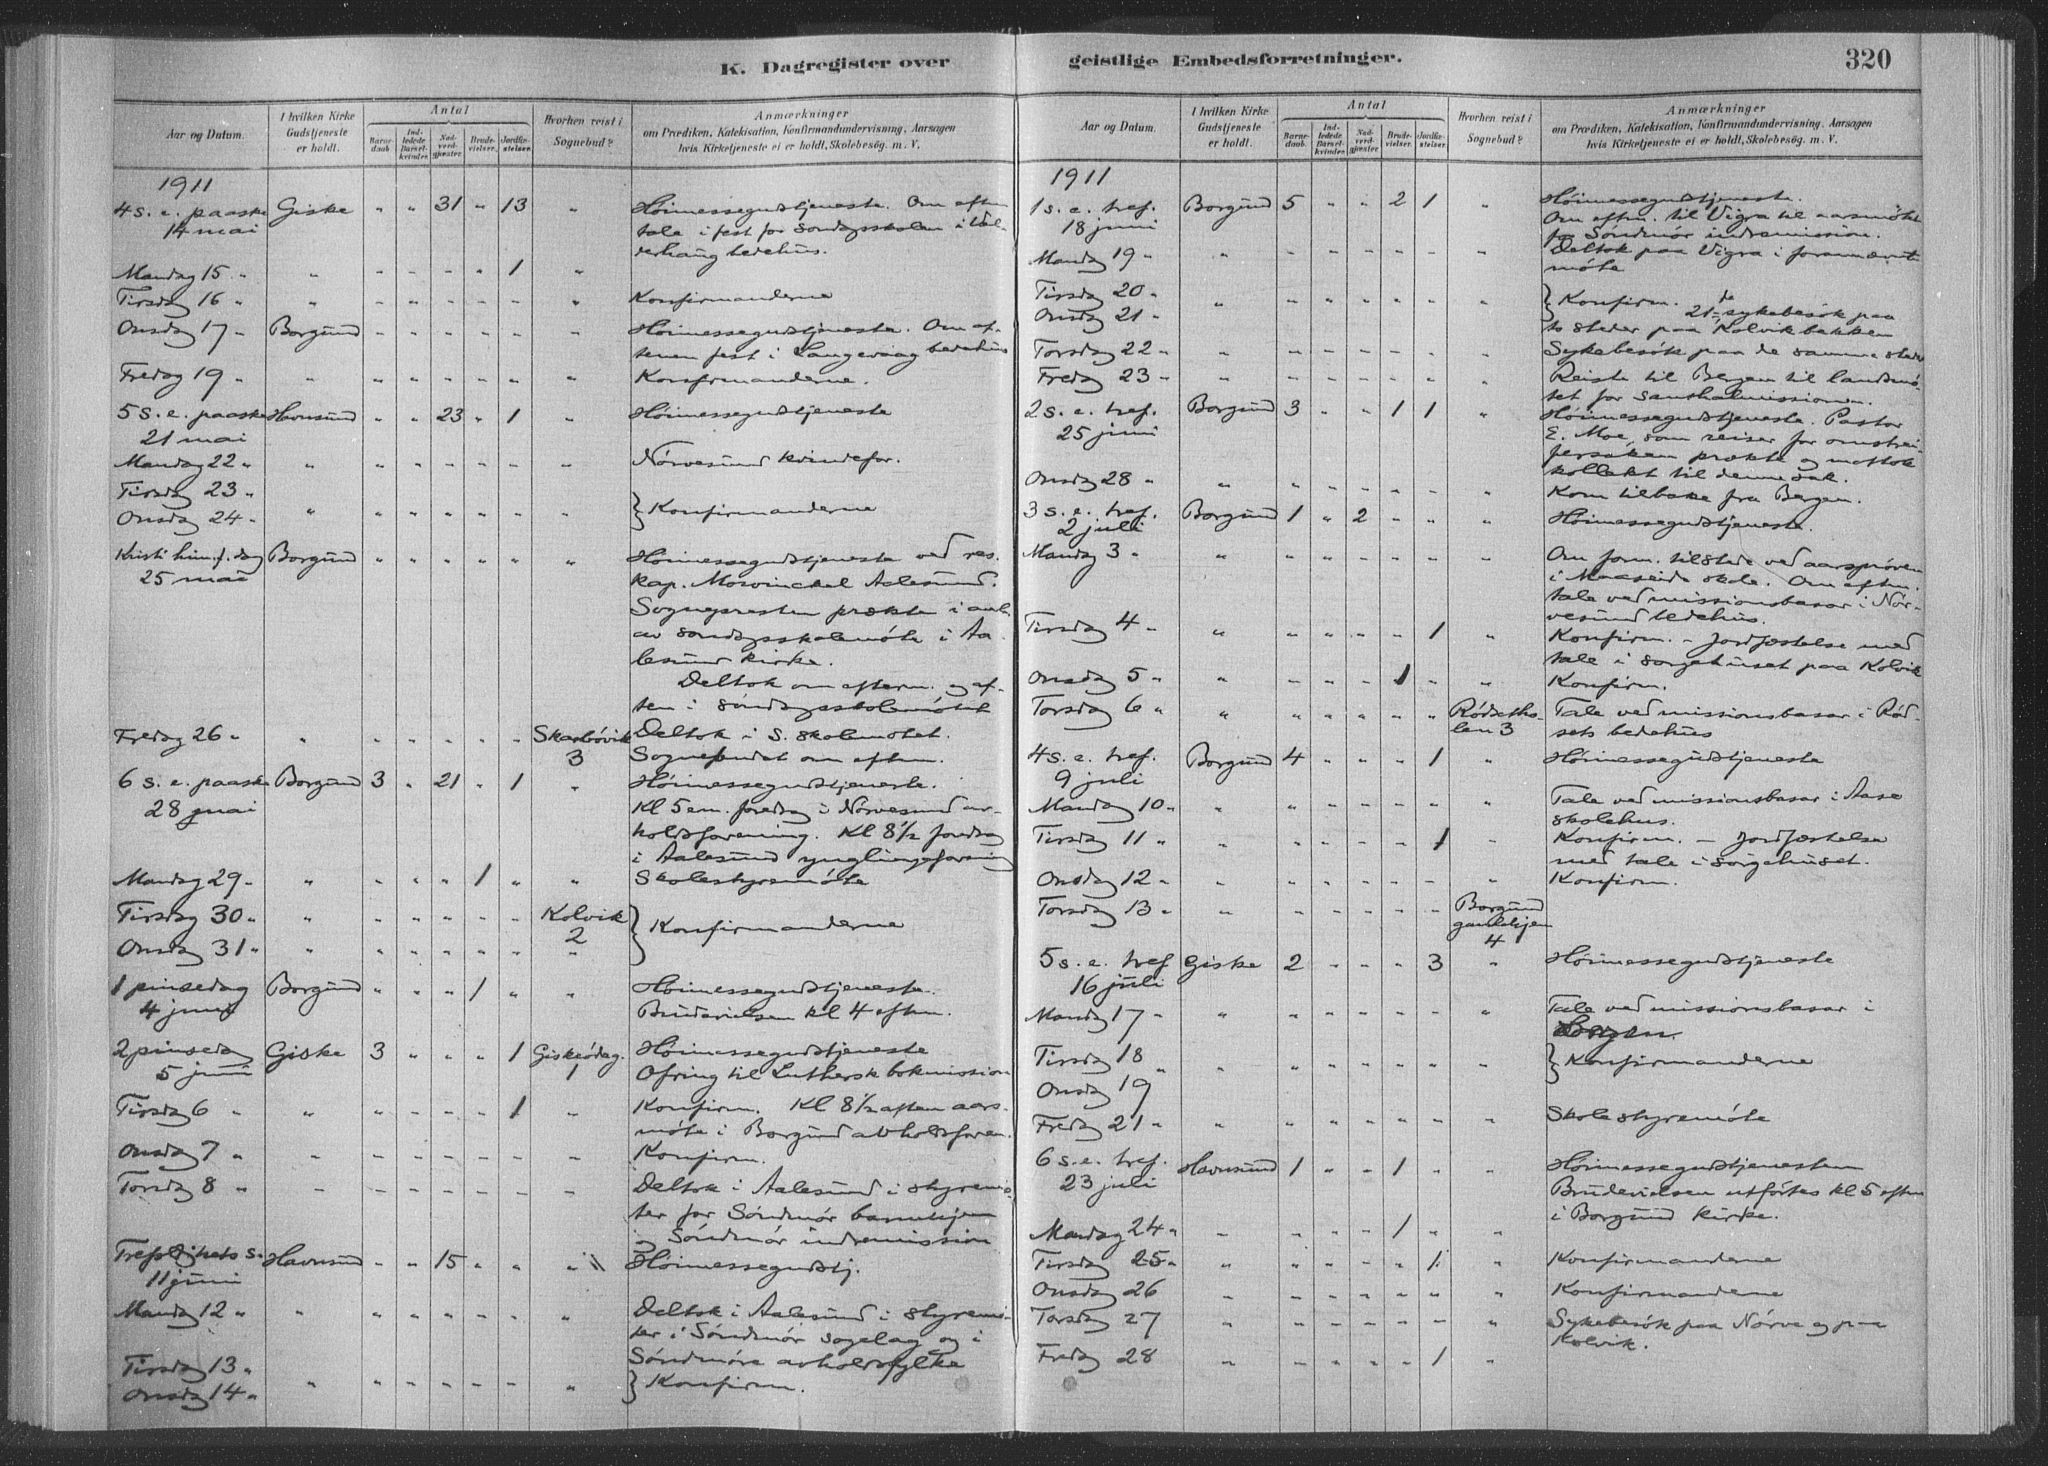 K. Dagregister over
Aar og Datum.
I hvilken Kirke Gudstjeneste er holdt.
Antal
Barne-daab.
Ind-ledede Barsel-kvinder.
Nad-verd-gjæster.
Brude-vielser.
Jordfæ-stelser.
Hvorhen reist i Sognebud?
Anmærkninger
om Prædiken, Katekisation, Konfirmandundervisning, Aarsagen
hvis Kirketjeneste ei er holdt, Skolebesøg. m. V.
1911
4 s. e. paaske Giske " " 31 " 13 " Høimessegudstjeneste. Om eften
14 mai tale i fest for søndagsskolen i Val-
derhaug bedehus.
Mandag 15 " " " " " " 1 "
Tirsdag 16 " " " " " " " " Konfirmanderne
Onsdag 17 " Borgund " " " " " " Høimessegudstjeneste. Om af-
tenen fest i Langevaag bedehus
Fredag 19 " " " " " " " " Konfirmanderne.
5 s. e. paaske Havnsund " " 23 " 1 " Høimessegudstjeneste
21 mai
Mandag 22 " " " " " " " " Nørvesund kvindefor.
Tirsdag 23 "
Onsdag 24 " " " " " " " " } Konfirmanderne
Kristi him.f. dag Borgund " " " " " " Høimessegudstjeneste ved res.
25 mai kap. Mowinckel Aalesund.
Sognepresten prækte i anl.
av søndagsskolemøte i Aa-
lesund kirke.
Deltok om efterm. og af-
ten i søndagsskolemøtet
Fredag 26 " " " " " " " Skarbövik Deltok i S. skolemøtet.
3 Sognebudet om eften.
6 s. e. paaske Borgund 3 " 21 " 1 " Høimessegudstjeneste.
28 mai Kl 5 em. foredrag i Nørvesund av-
holdsforening. Kl 8 1/2 foredrag
i Aalesund ynglingeforening
Mandag 29 " " " " " 1 " " Skolestyremöte
Tirsdag 30 " " " " " " " Kolvik
2 } Konfirmanderne
Onsdag 31 " " " " " " " "
1 pinsedag Borgund " " " 1 " " Høimessegudstjeneste.
4 juni Brudevielsen kl 4 eften.
2 pinsedag Giske 3 " " " 1 Giskeödeg. Høimessegudstjeneste
5 juni 1 Ofring til Luthersk bokmission
Tirsdag 6 " " " " " " 1 " Konfirm. Kl 8 1/2 aften aars-
møte i Borgund avholdsforen.
Onsdag 7 " " " " " " " " Konfirm.
Torsdag 8 " " " " " " " " Deltok i Aalesund i styremö-
ter for Söndmör barnehjem
og Söndmör indremission
Trefoldighets s. Havnsund " " 15 " " " Høimessegudstj.
11 juni
Mandag 12 " " " " " " " " Deltok i Aalesund i styremö-
ter i Söndmör sogelag og i
Söndmöre avholdsfylke
Tirsdag 13 "
Onsdag 14 " " " " " " " " } Konfirm.
geistlige Embedsforretninger.
320
Aar og Datum.
I hvilken Kirke Gudstjeneste er holdt.
Antal
Barne-daab.
Ind-ledede Barsel-kvinder.
Nad-verd-gjæster.
Brude-vielser.
Jordfæ-stelser.
Hvorhen reist i Sognebud?
Anmærkninger
om Prædiken, Katekisation, Konfirmandundervisning, Aarsagen
hvis Kirketjeneste ei er holdt, Skolebesög. m. V.
1911
1 s. e. tref. Borgund 5 " " 2 1 " Høimessegudstjeneste.
18 juni Om eftn. til Vigra til aarsmöte
for Söndmör indremission.
Mandag 19 " " " " " " " " Deltok paa Vigra i forannævnte
möte
Tirsdag 20 "
Onsdag 21 " " " " " " " " } Konfirm. 21de sykebesök paa
to steder paa Kolvikbakken
Torsdag 22 " " " " " " " " Sykebesök paa de samme steder
Fredag 23 " " " " " " " " Reiste til Bergen til landsmö-
tet for santhalmissionen.
2 s. e. tref. Borgund 3 " " 1 1 " Høimessegudstjeneste. Pastor
25 juni E. Moe, som reiser for omstrei-
fersaken prækte og mottok
kollekt til denne sak.
Onsdag 28 " " " " " " " " Kom tilbake fra Bergen.
3 s. e. tref. Borgund 1 " 2 " " " Høimessegudstjeneste.
2 juli
Mandag 3 " " " " " " " " Om form. tilstede ved aarspröven
i Maaseide skole. Om eftm.
tale ved missionsbasar i Nör-
vesund bedehus.
Tirsdag 4 " " " " " " 1 " Konfirm. – Jordfæstelse med
tale i sørgehuset paa Kolvik
Onsdag 5 " " " " " 1 " " Konfirm.
Torsdag 6 " " " " " " " Rödseths- Tale ved missionsbasar i Röd-
len 3 sets bedehus
4 s. e. tref. Borgund 4 " " " 1 " Høimessegudstjeneste
9 juli
Mandag 10 " " " " " " " " Tale ved missionsbasar i Aase
skolehus.
Tirsdag 11 " " " " " " 1 " Konfirm. – Jordfæstelse
med tale i sørgehuset.
Onsdag 12 " " " " " " " " Konfirm.
Torsdag 13 " " " " " " " Borgund
gamlehjem
4
5 s. e. tref Giske 2 " " " 3 " Høimessegudstjeneste
16 juli
Mandag 17 " " " " " " " " Tale ved missionsbasar i
Tirsdag 18 " " " " " " " } Konfirmanderne
Onsdag 19
Fredag 21 " " " " " " " " Skolestyremöte
6 s. e. tref. Havnsund 1 " " 1 " " Høimessegudstjenesten
23 juli Brudevielsen utförtes kl 5 eften
i Borgund kirke.
Mandag 24 " " " " " 1 " "
Tirsdag 25 " " " " " " 1 " Konfirmanderne
Onsdag 26 " " " " " " " Konfirmanderne
Torsdag 27 " " " " " " " Sykebesök paa Nörve og paa
Kolvik.
Fredag 28 " " " " " 1 "